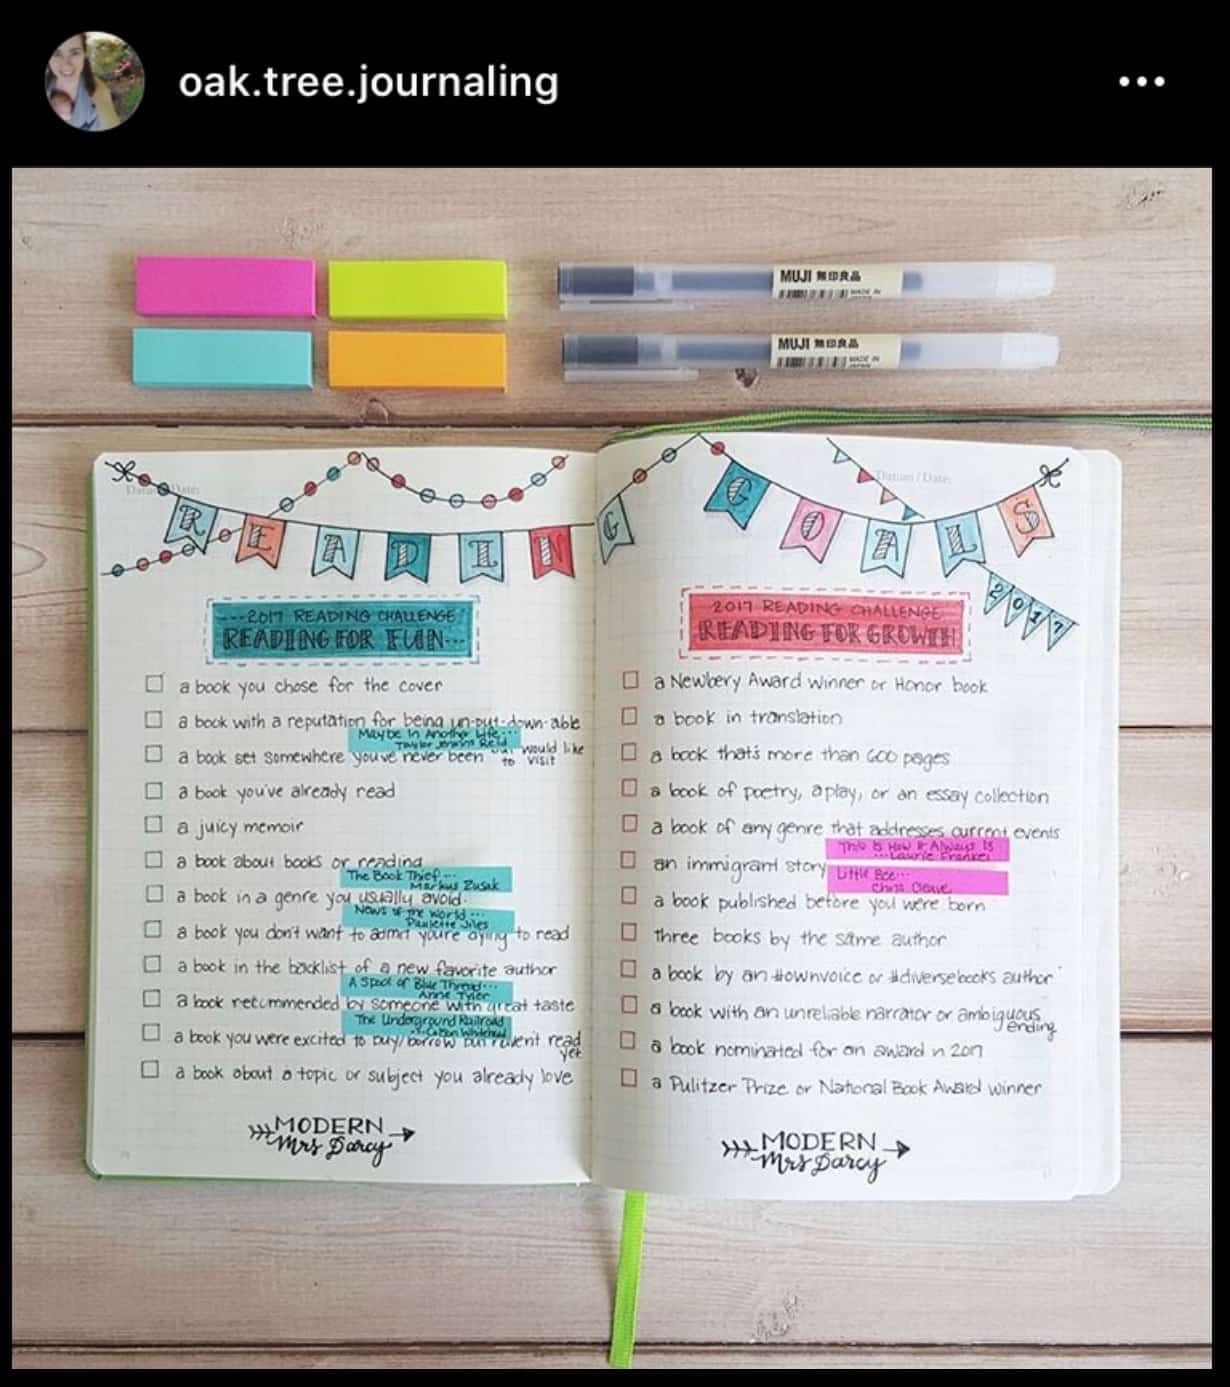 oak.tree.journaling
MUJI 無印良品
MADE IN JAPAN
MUJI 無印良品
MADE IN JAPAN
Datum / Date:
READING GOALS
2017
2017 READING CHALLENGE
READING FOR FUN
a book you chose for the cover
a book with a reputation for being un-put-down-able
Maybe In Another Life...
Taylor Jenkins Reid
a book set somewhere you've never been but would like
to visit
a book you've already read
a juicy memoir
a book about books or reading
The Book Thief...
Markus Zusak
a book in a genre you usually avoid
News of the World...
Paulette Jiles
a book you don't want to admit you're dying to read
a book in the backlist of a new favorite author
A Spool of Blue Thread...
Anne Tyler
a book recommended by someone with great taste
The Underground Railroad
...Colson Whitehead
a book you were excited to buy/borrow but haven't read
yet
a book about a topic or subject you already love
MODERN
Mrs Darcy
Datum / Date:
2017 READING CHALLENGE
READING FOR GROWTH
a Newbery Award winner or Honor book
a book in translation
a book that's more than 600 pages
a book of poetry, a play, or an essay collection
a book of any genre that addresses current events
This Is How It Always Is
...Laurie Frankel
an immigrant story
Little Bee...
Chris Cleave
a book published before you were born
three books by the same author
a book by an #ownvoice or #diversebooks author
a book with an unreliable narrator or ambiguous
ending
a book nominated for an award in 2017
a Pulitzer Prize or National Book Award winner
MODERN
Mrs Darcy